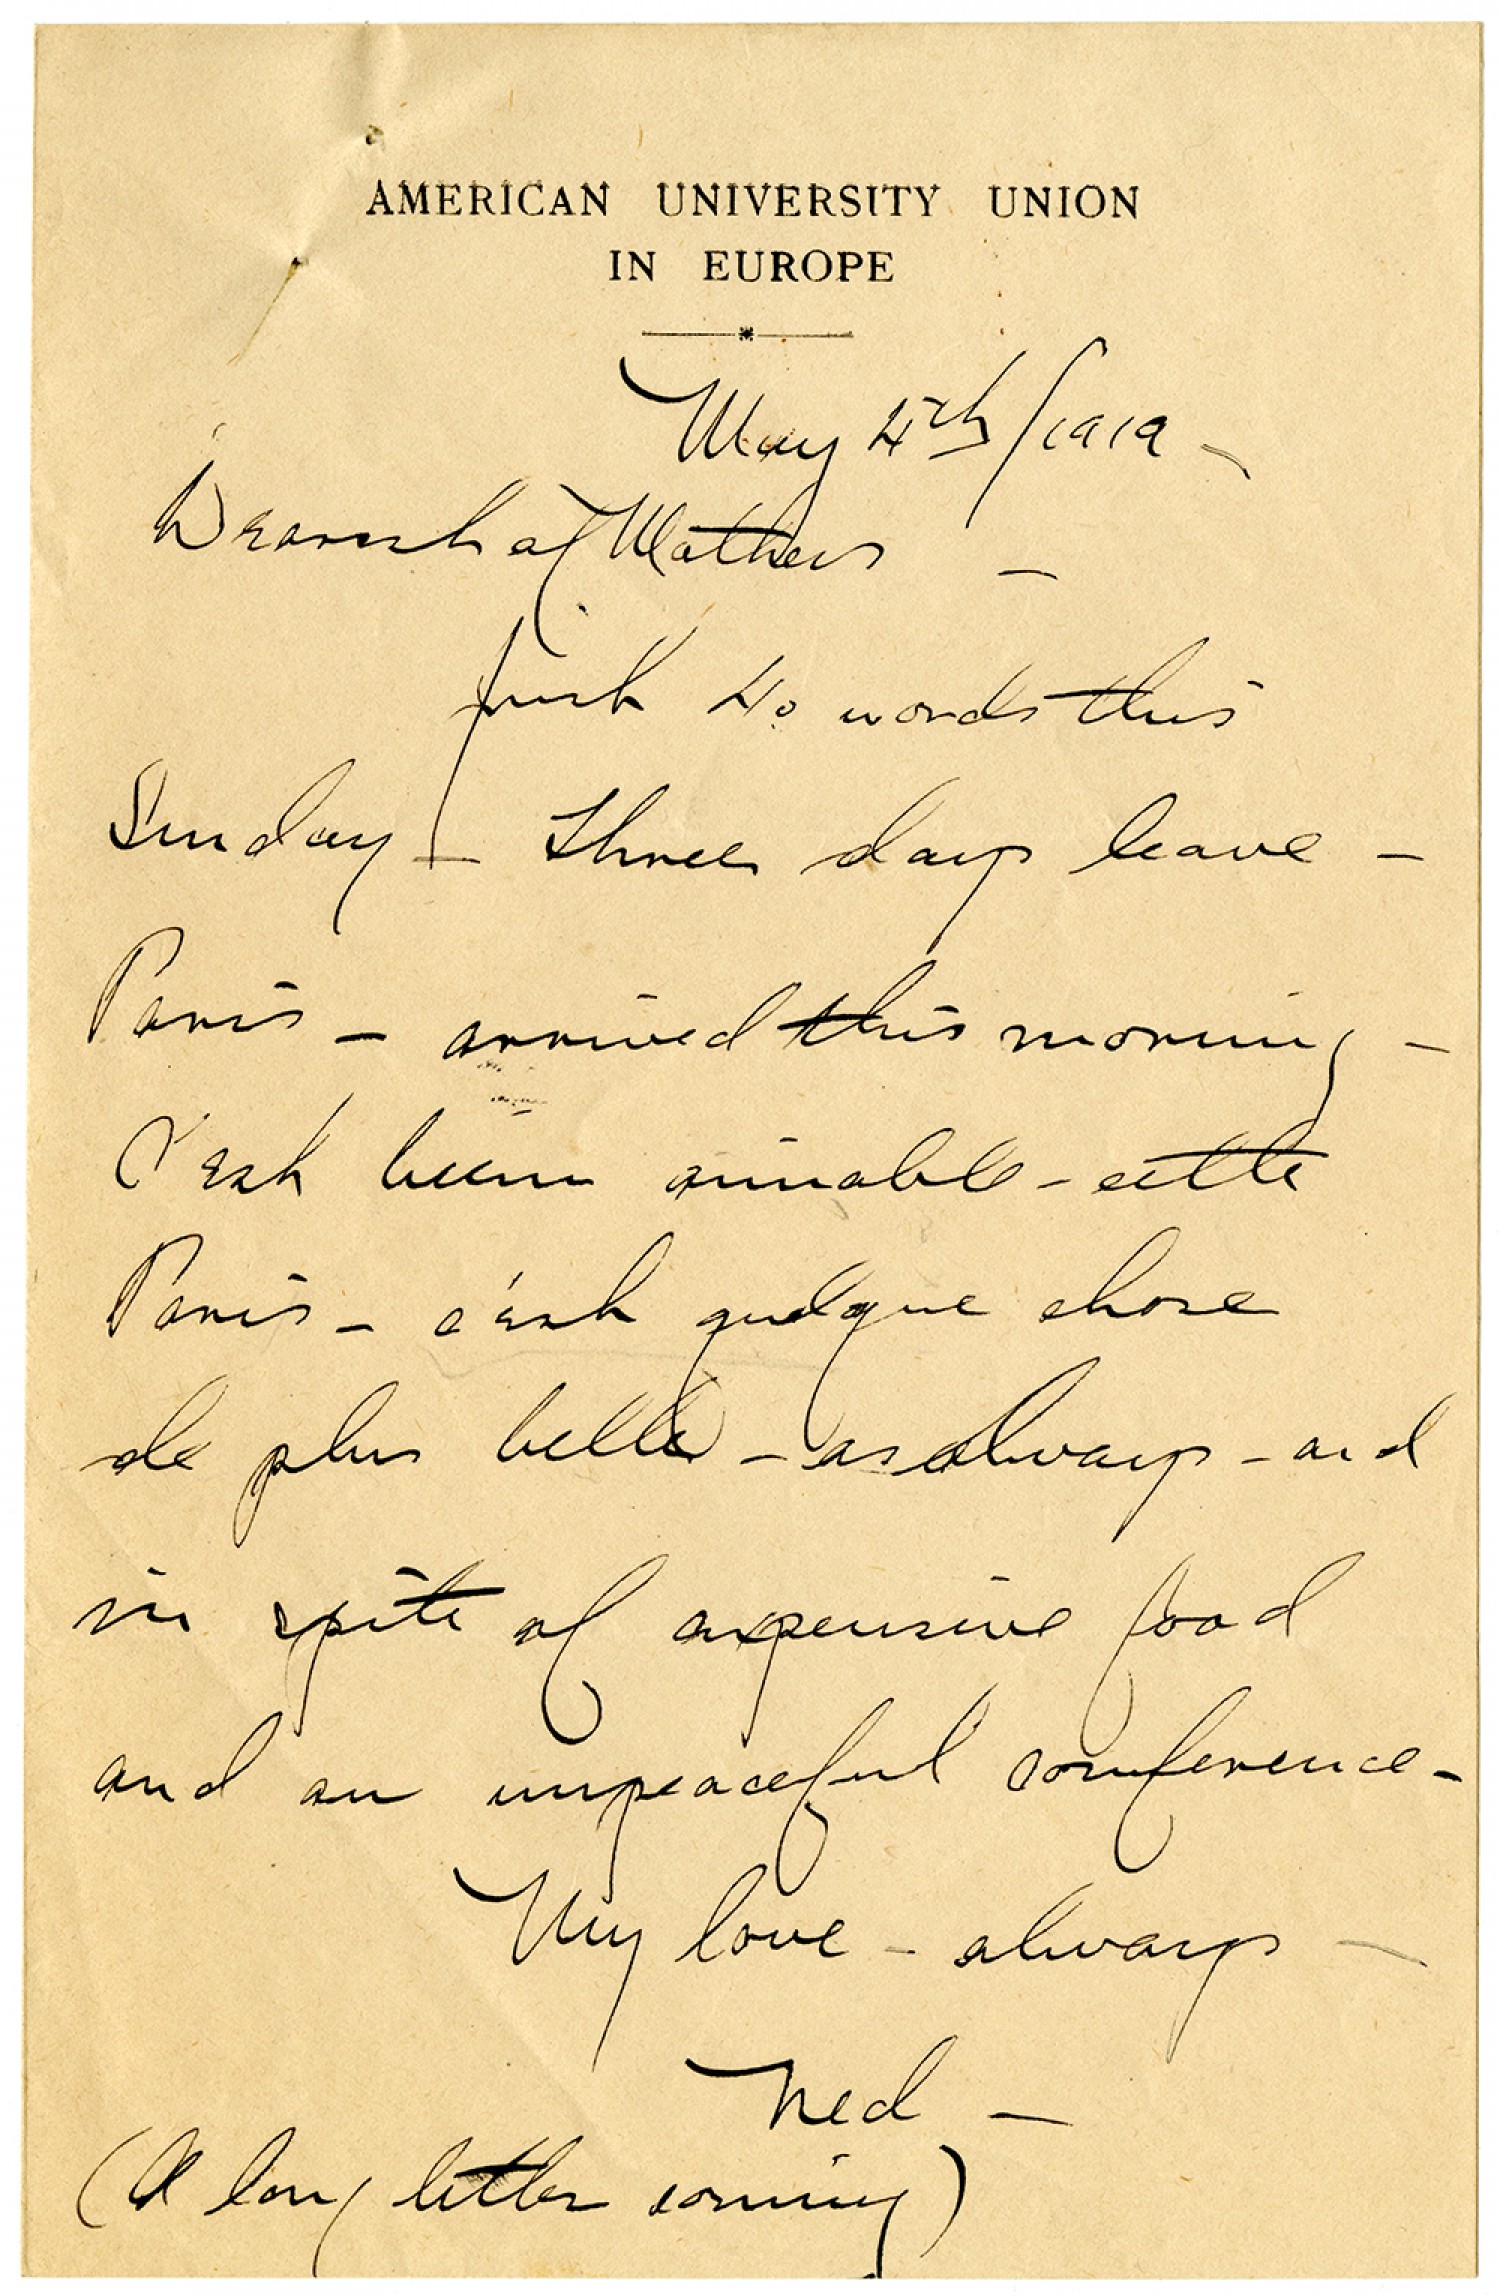 AMERICAN UNIVERSITY UNION
IN EUROPE
May 4th/1919 -
Dearest of Mothers -
just 40 words this
Sunday - Three days leave -
Paris - arrived this morning -
C'est bien aimable - cette
Paris - c'est quelque chose
de plus belle - as always - and
in spite of expensive food
and an unpeaceful conference -
My love - always -
Ned -
(A long letter coming)